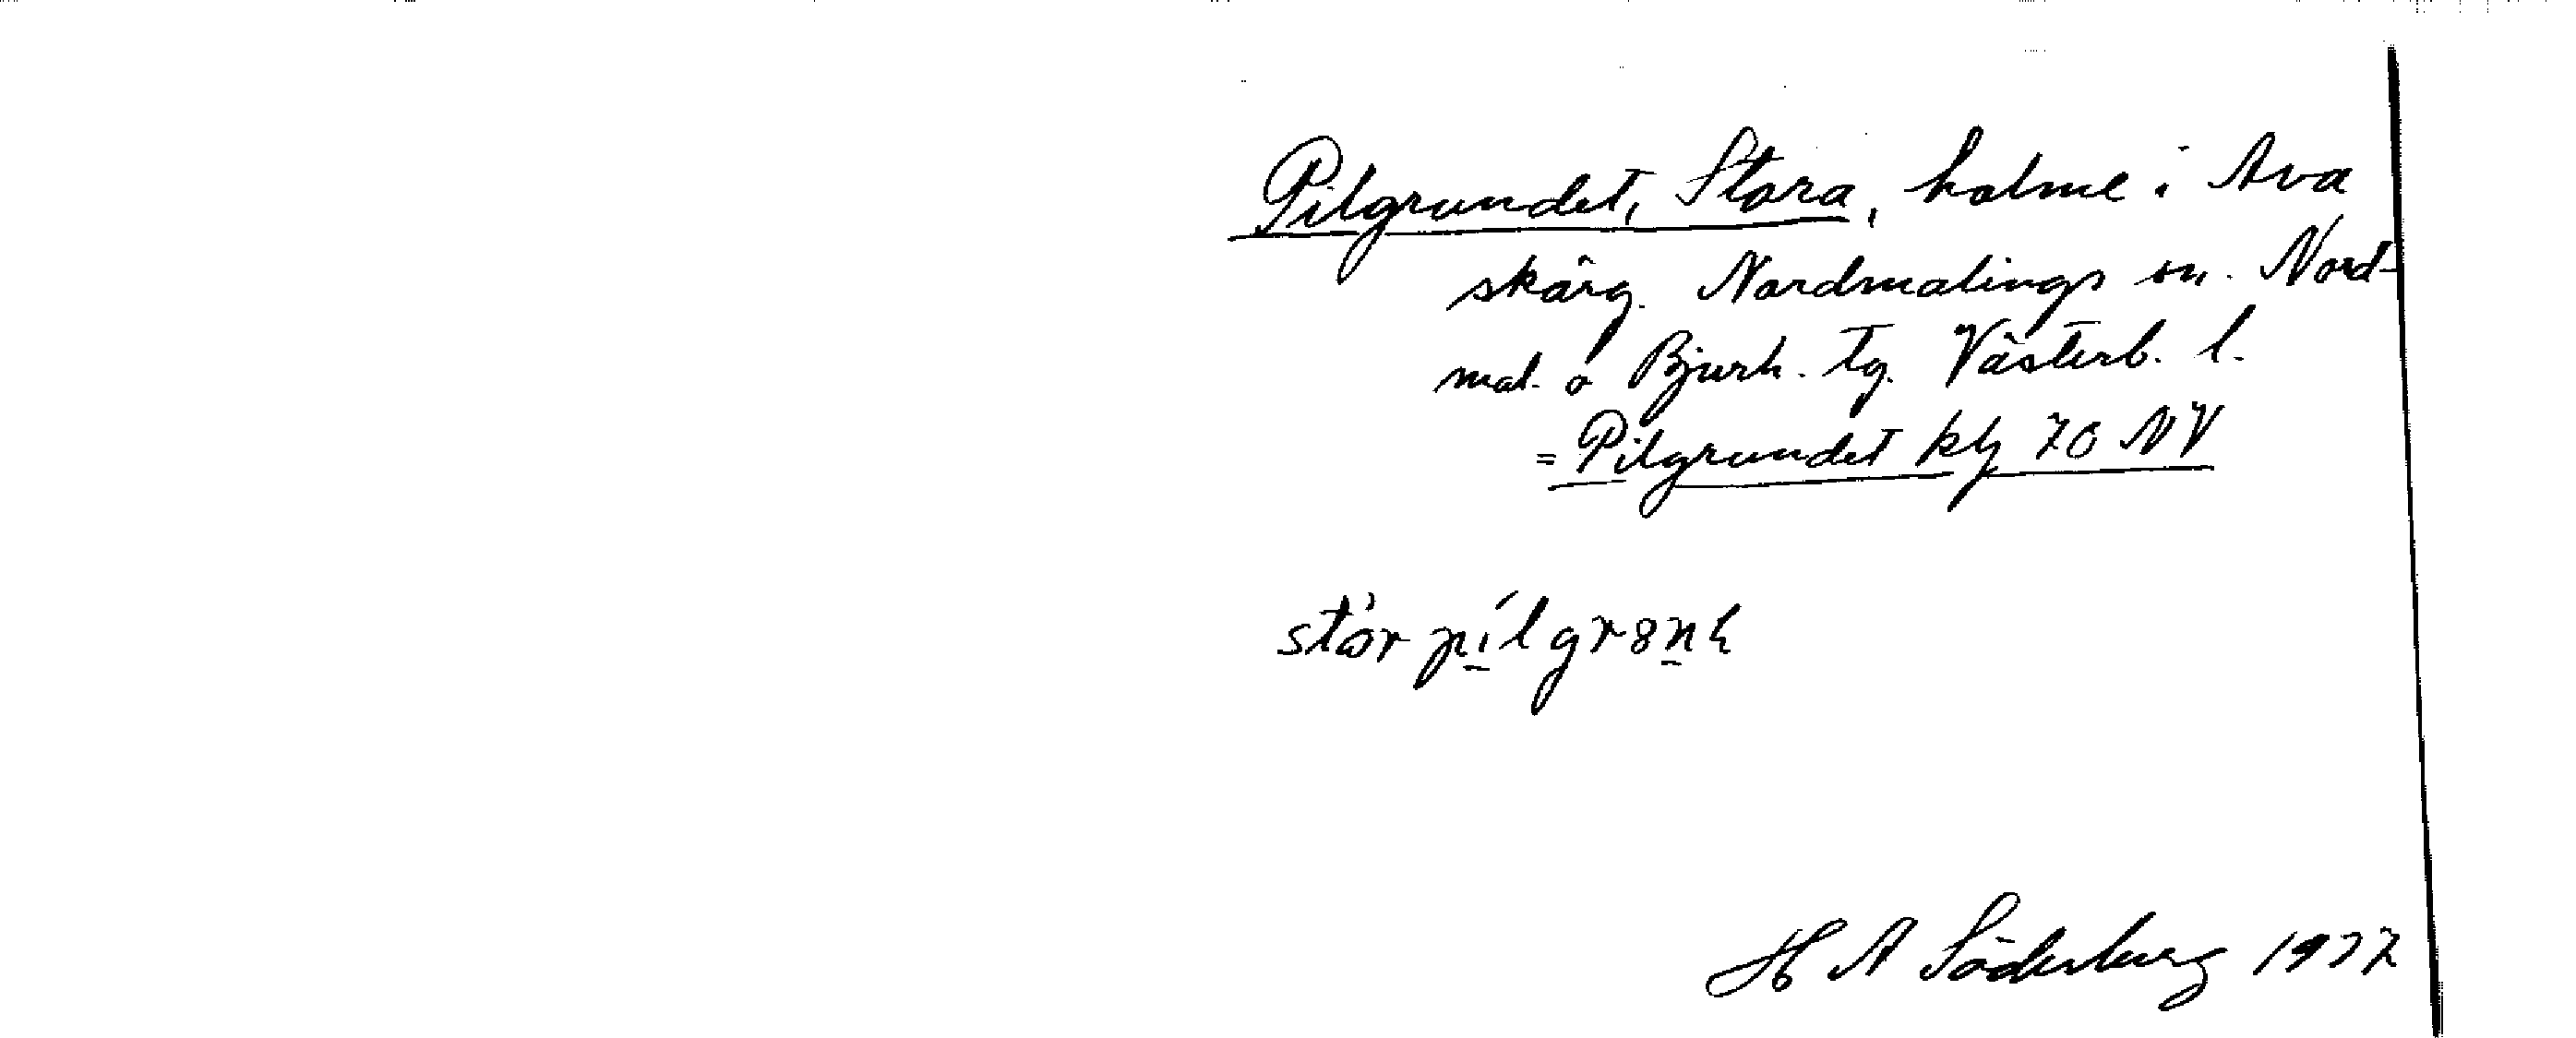 Pilgrundet, Stora, holme i Ava
skärg. Nordmalings sn. Nord-
mal. o Bjurh. tg. Västerb. l.
= Pilgrundet kbl 70 NV
H A Söderberg 1937